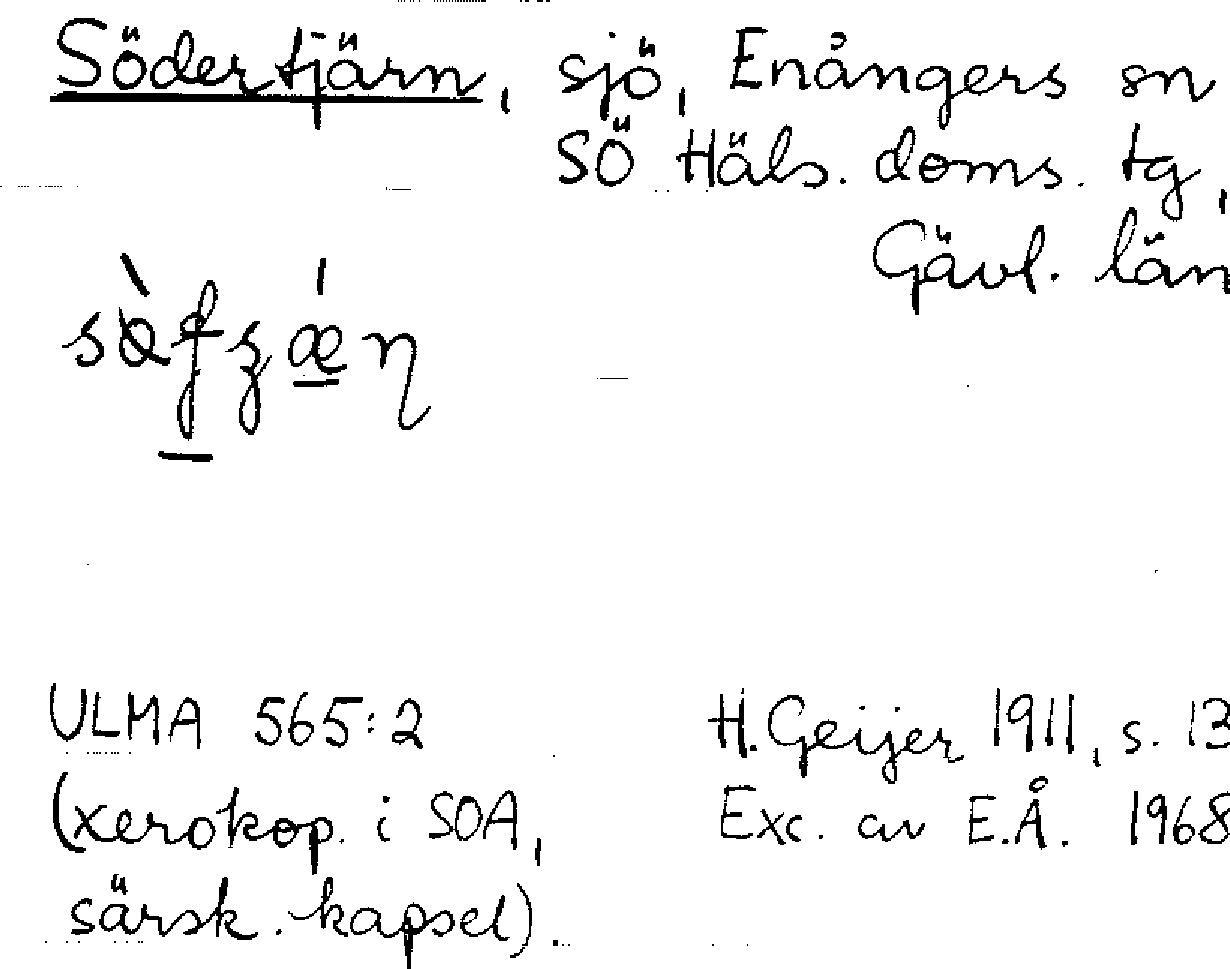 Södertjärn, sjö, Enångers sn
SÖ Häls. doms. tg,
Gävl. län
ULMA 565:2
H. Geijer 1911, s. 13
(xerokop. i SOA,
Exc. av E.Å. 1968
särsk. kapsel).